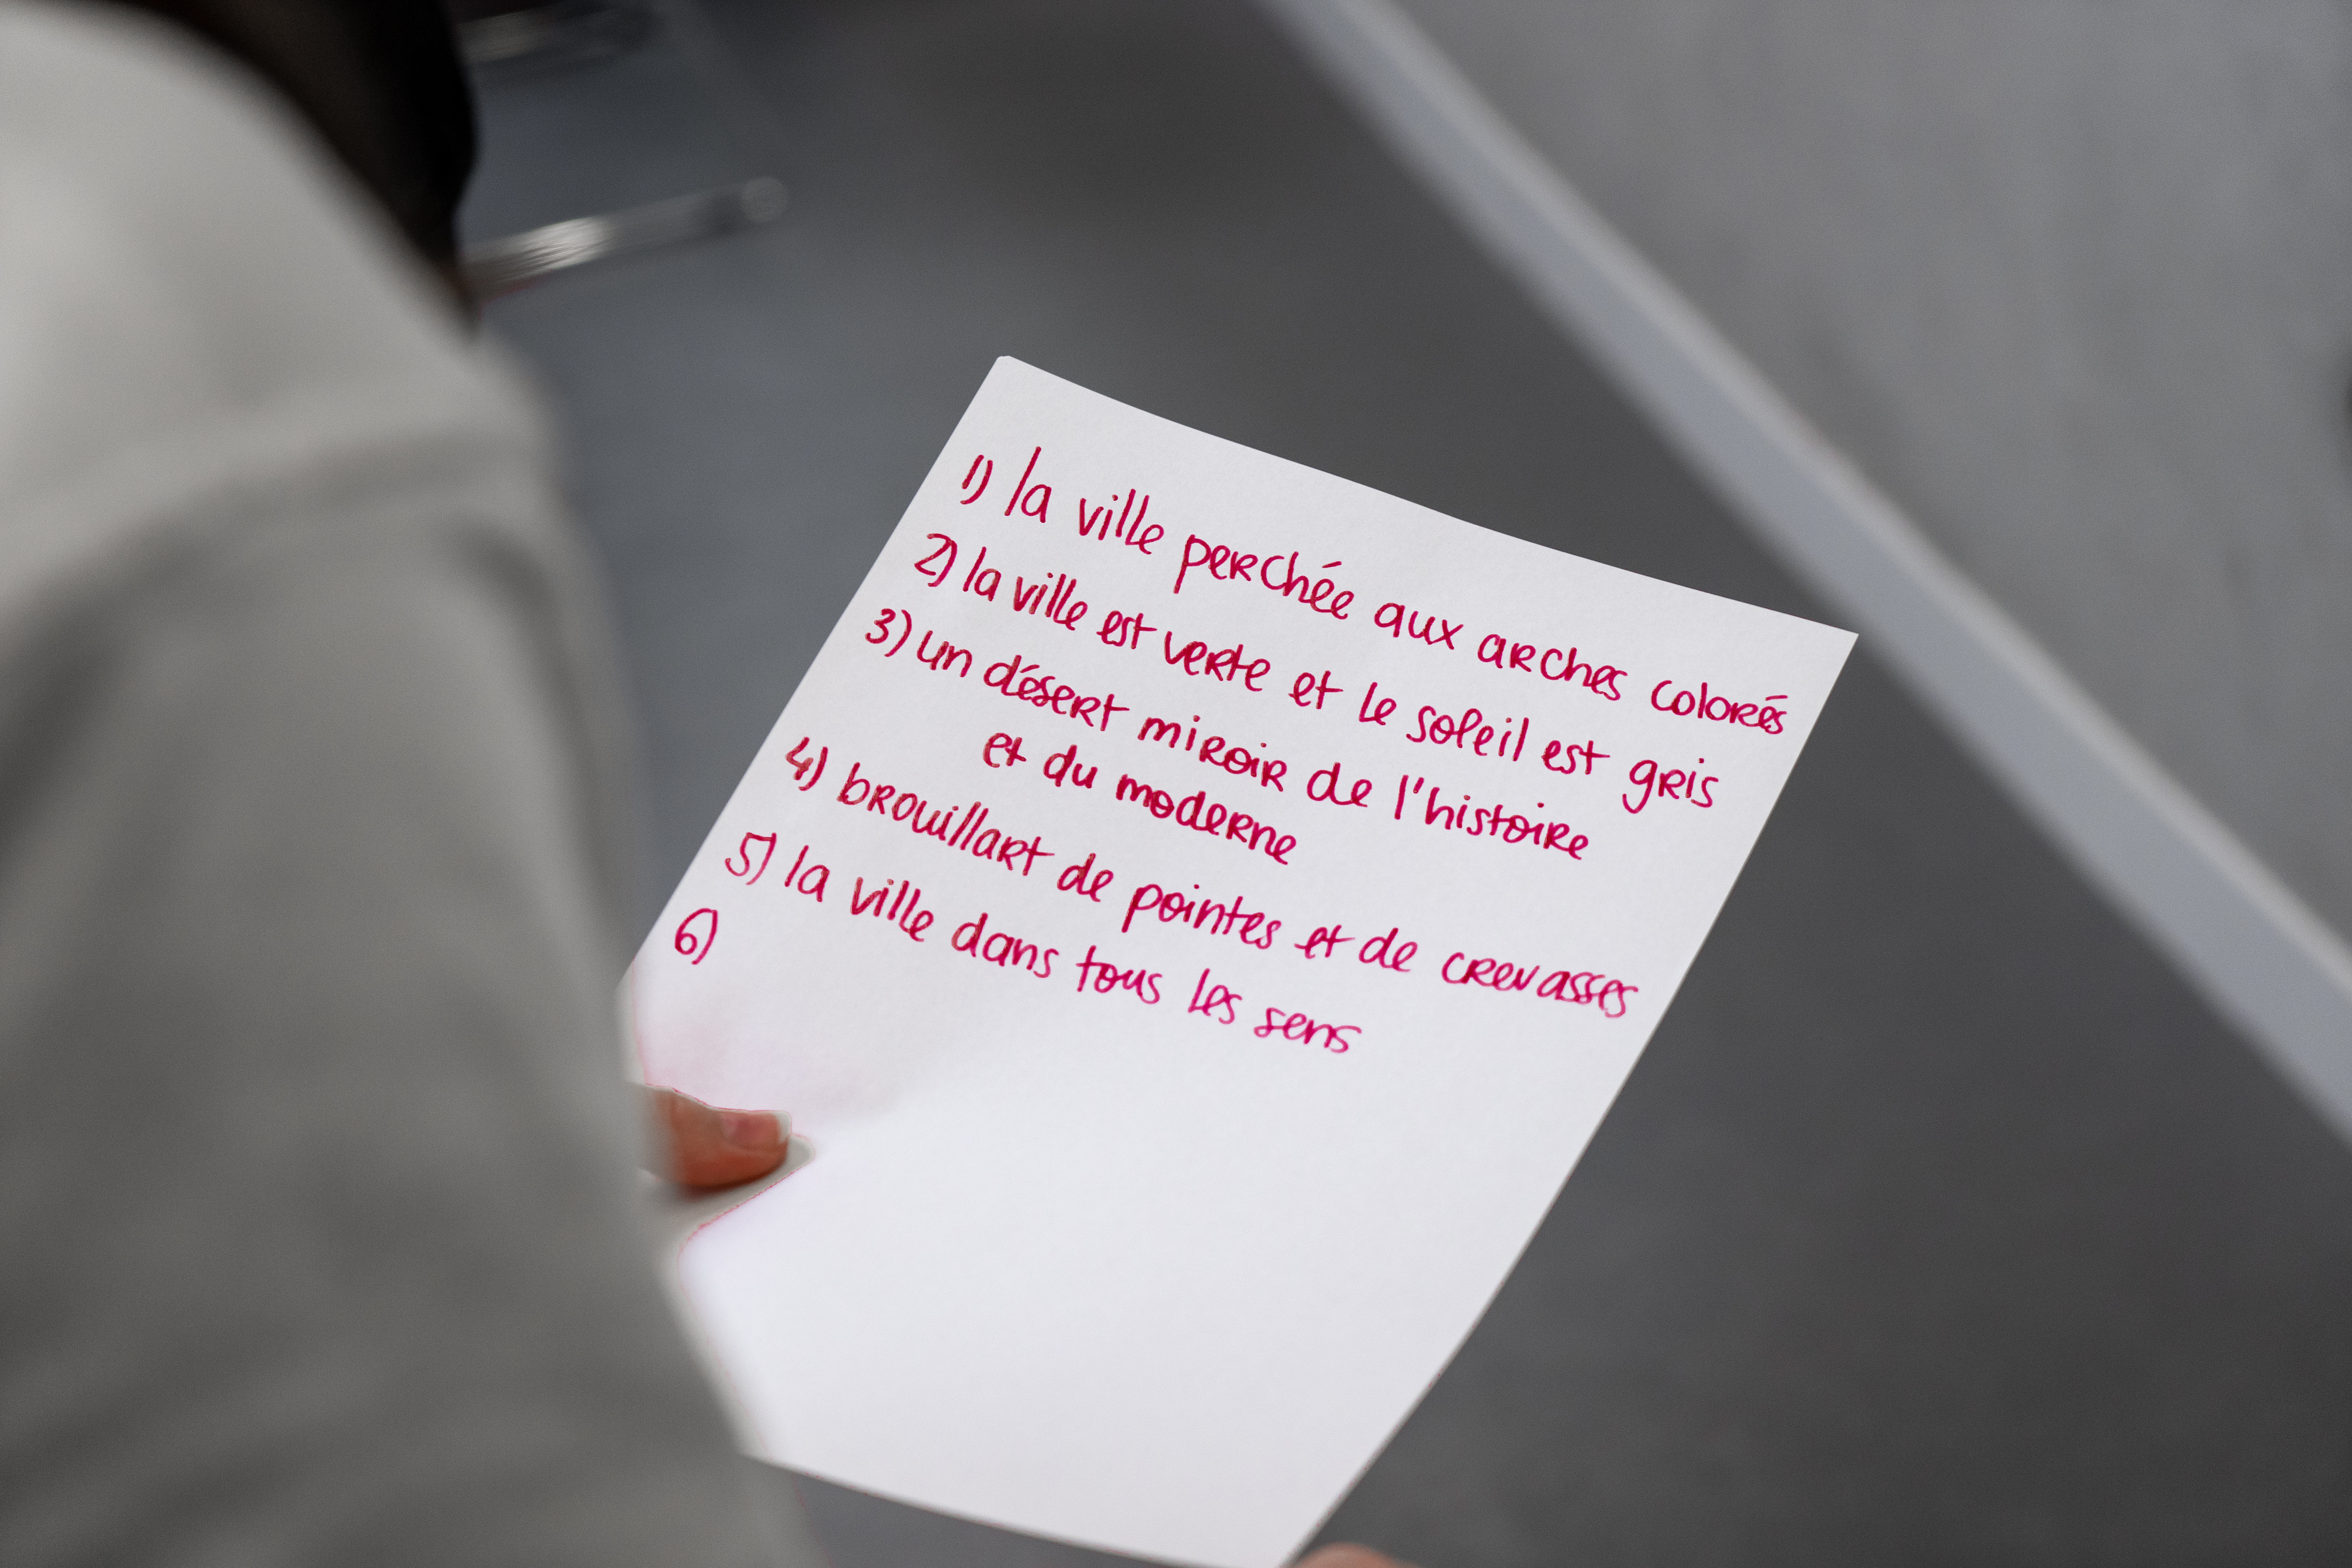 1) la ville perchée aux arches colorés
2) la ville est verte et le soleil est gris
3) un désert miroir de l'histoire
et du moderne
4) brouillart de pointes et de crevasses
5) la ville dans tous les sens
6)